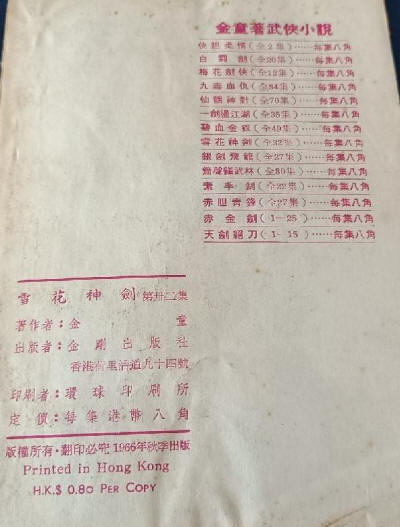 金童著武俠小說
俠胆柔情(全2集)……每集八角
白霜劍(全20集)……每集八角
梅花劍俠(全12集)……每集八角
九毒血仇(全34集)……每集八角
仙鶴神針(全70集)……每集八角
一劍還江湖(全35集)……每集八角
碧血金釵(全49集)……每集八角
雪花神劍(全32集)……每集八角
銀劍飛龍(全27集)……每集八角
簫聲鎮武林(全80集)……每集八角
素手劍(全22集)……每集八角
赤胆青鋒(全27集)……每集八角
赤金劍(1—25)……每集八角
天劍絕刀(1—15)……每集八角
雪花神劍第卅二集
著作者:金童
出版者:金剛出版社
香港荷里活道九十四號
印刷者:環球印刷所
定價:每集港幣八角
版權所有·翻印必究 1966年秋季出版
Printed in Hong Kong
H.K.$ 0.80 PER COPY